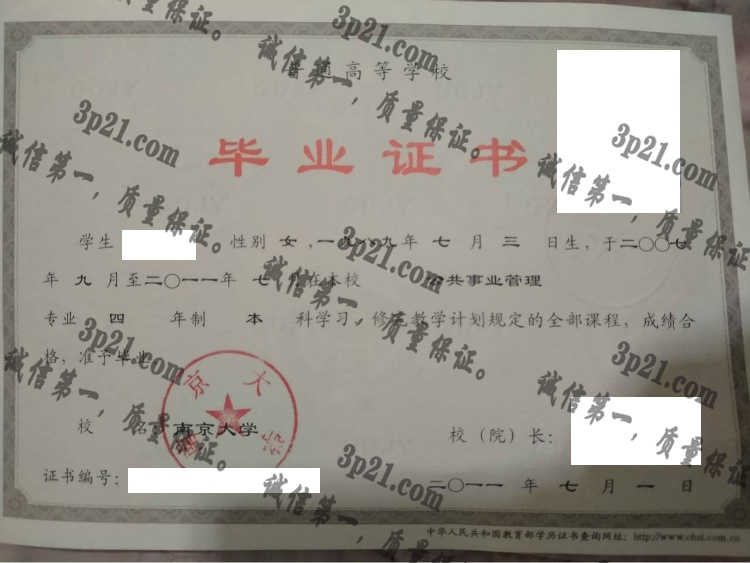 普通高等学校
毕业证书
学生 性别 女,一九八九年 七 月 三 日生,于二〇〇七
年 九 月至二〇一一年 七 月在本校 公共事业管理
专业 四 年制 本 科学习,修完教学计划规定的全部课程,成绩合
格,准予毕业。
校 名:南京大学
校(院)长:
证书编号:
二〇一一 年 七 月 一 日
中华人民共和国教育部学历证书查询网址:http://www.chsi.com.cn
南京大学
3p21.com
诚信第一,质量保证。
3p21.com
诚信第一,质量保证。
3p21.com
诚信第一,质量保证。
3p21.com
诚信第一,质量保证。
3p21.com
诚信第一,质量保证。
3p21.com
诚信第一,质量保证。
3p21.com
诚信第一,质量保证。
质量保证。